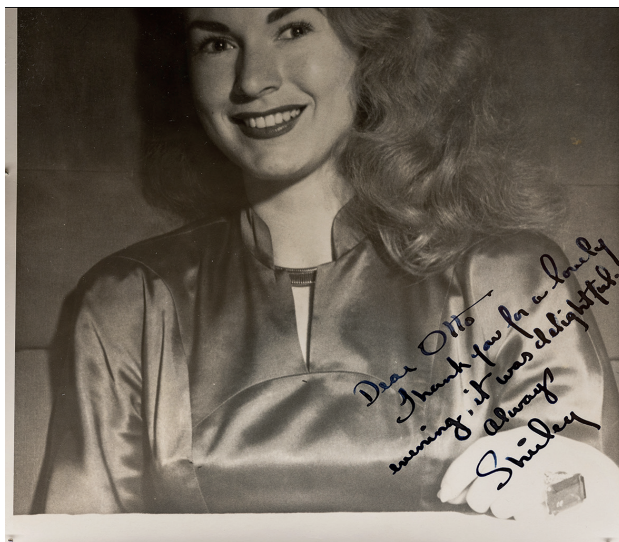 Dear Otto
Thank you for a lovely
evening, it was delightful.
Always
Shirley